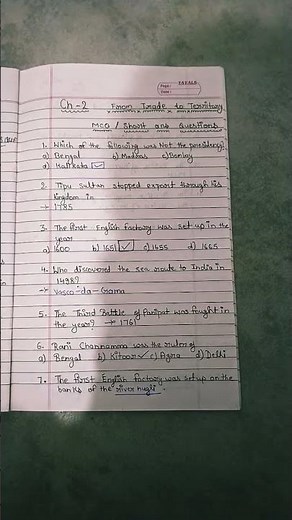 Page:
Date:
Ch-2 From Trade to Territory
MCQ / Short ans Questions
1. Which of the following was Not the presidency?
a) Bengal b) Madras c) Bombay
d) Kolkata ✓
2. Tipu Sultan stopped export through his
kingdom in
→ 1785
3. The first English factory was set up in the
year
a) 1600 b) 1651 ✓ c) 1455 d) 1665
4. Who discovered the sea route to India in
1498?
→ Vasco-da-Gama
5. The Third Battle of Panipat was fought in
the year? → 1761
6. Rani Channamma was the ruler of
a) Bengal b) Kitoor ✓ c) Agra d) Delhi
7. The first English factory was set up on the
banks of the river hugli.